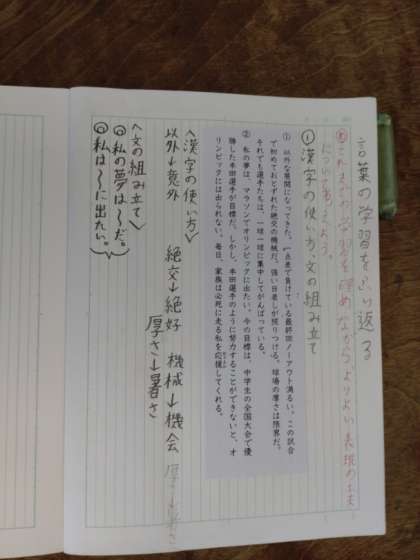 言葉の学習をふり返る
めこれまでの学習を確認しながらよりよい表現の工夫
について考えよう。
①漢字の使い方、文の組み立て
① 以外な展開になってきた。一点差で負けている最終回ノーアウト満るい。この試合
で初めておとずれた絶交の機械だ。強い日差しが照りつける。球場の厚さは限界だ。
それでも選手たちは、一球一球に集中してがんばっている。
② 私の夢は、マラソンでオリンピックに出たい。今の目標は、中学生の全国大会で優
勝した本田選手が目標だ。しかし、本田選手のように努力することができないと、オ
リンピックには出られない。毎日、家族は必死に走る私を応援してくれる。
〈漢字の使い方〉
以外→意外 絶交→絶好 機械→機会
厚さ→暑さ
〈文の組み立て〉
◎私の夢は〜だ。
◎私は〜に出たい。